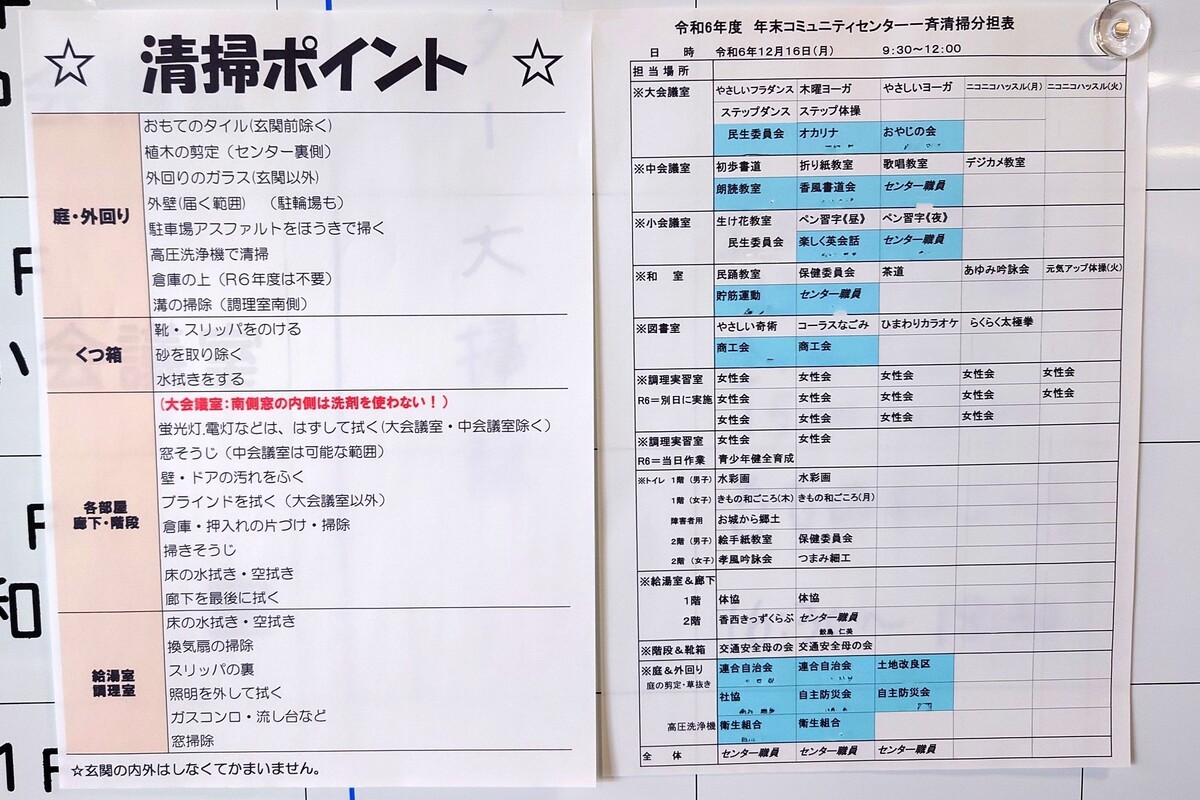 ☆ 清掃ポイント ☆
庭・外回り
おもてのタイル(玄関前除く)
植木の剪定（センター裏側）
外回りのガラス(玄関以外)
外壁(届く範囲) （駐輪場も）
駐車場アスファルトをほうきで掃く
高圧洗浄機で清掃
倉庫の上（R６年度は不要）
溝の掃除（調理室南側）
くつ箱
靴・スリッパをのける
砂を取り除く
水拭きをする
各部屋
廊下・階段
(大会議室：南側窓の内側は洗剤を使わない！）
蛍光灯,電灯などは、はずして拭く(大会議室・中会議室除く）
窓そうじ（中会議室は可能な範囲）
壁・ドアの汚れをふく
ブラインドを拭く（大会議室以外）
倉庫・押入れの片づけ・掃除
掃きそうじ
床の水拭き・空拭き
廊下を最後に拭く
給湯室
調理室
床の水拭き・空拭き
換気扇の掃除
スリッパの裏
照明を外して拭く
ガスコンロ・流し台など
窓掃除
☆玄関の内外はしなくてかまいません。
令和6年度 年末コミュニティセンター一斉清掃分担表
日 時 令和6年12月16日(月) 9:30～12:00
担当場所
※大会議室 やさしいフラダンス 木曜ヨーガ やさしいヨーガ ニコニコハッスル(月) ニコニコハッスル(火)
ステップダンス ステップ体操
民生委員会 オカリナ おやじの会
※中会議室 初歩書道 折り紙教室 歌唱教室 デジカメ教室
朗読教室 香風書道会 センター職員
※小会議室 生け花教室 ペン習字《昼》 ペン習字《夜》
民生委員会 楽しく英会話 センター職員
※和 室 民踊教室 保健委員会 茶道 あゆみ吟詠会 元気アップ体操(火)
貯筋運動 センター職員
※図書室 やさしい奇術 コーラスなごみ ひまわりカラオケ らくらく太極拳
商工会 商工会
※調理実習室 女性会 女性会 女性会 女性会 女性会
R6＝別日に実施 女性会 女性会 女性会 女性会 女性会
女性会 女性会 女性会 女性会
※調理実習室 女性会 女性会
R6＝当日作業 青少年健全育成
※トイレ 1階（男子） 水彩画 水彩画
1階（女子） きもの和ごころ(木) きもの和ごころ(月)
障害者用 お城から郷土
2階（男子） 絵手紙教室 保健委員会
2階（女子） 孝風吟詠会 つまみ細工
※給湯室＆廊下
1階 体協 体協
2階 香西きっずくらぶ センター職員
※階段＆靴箱 交通安全母の会 交通安全母の会
※庭＆外回り 連合自治会 連合自治会 土地改良区
庭の剪定・草抜き
社協 自主防災会 自主防災会
高圧洗浄機 衛生組合 衛生組合
全 体 センター職員 センター職員 センター職員